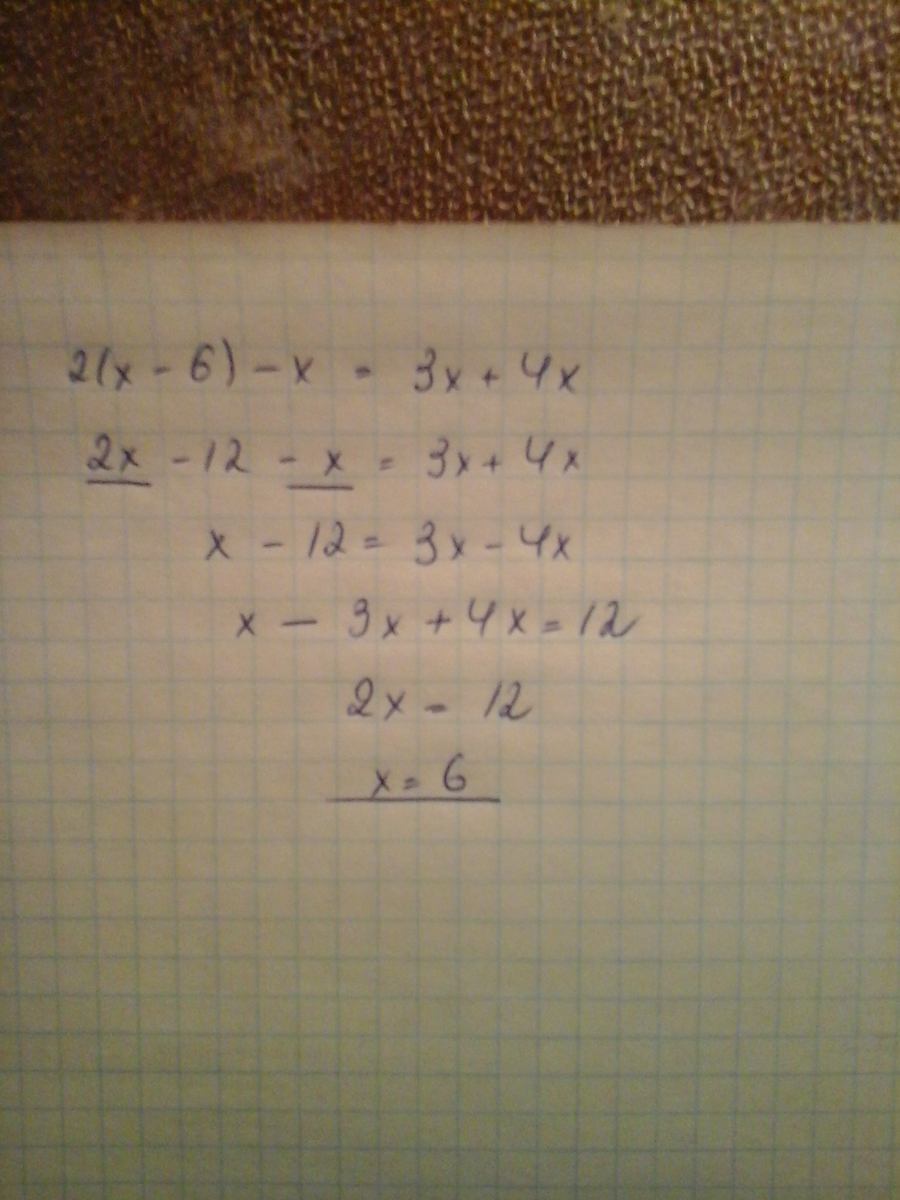 2(x - 6) - x = 3x + 4x
2x - 12 - x = 3x + 4x
x - 12 = 3x - 4x
x - 3x + 4x = 12
2x = 12
x = 6